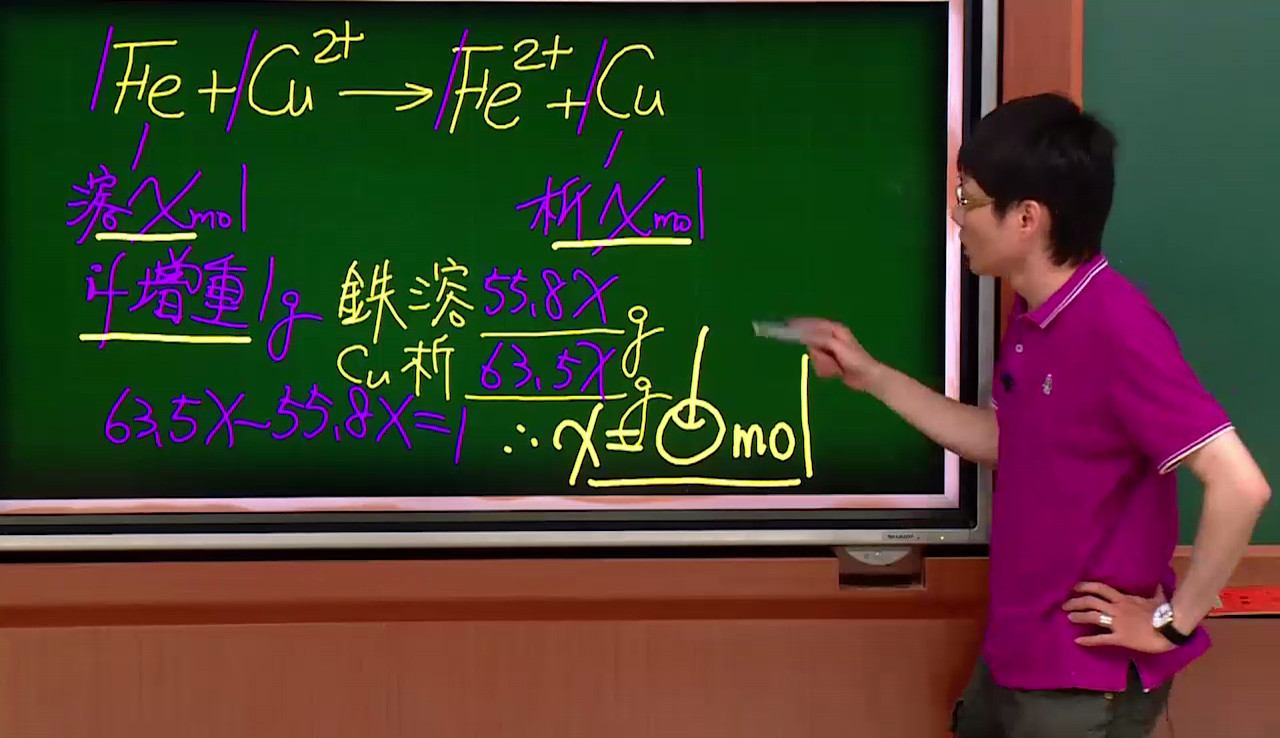 1Fe+1Cu²⁺→1Fe²⁺+1Cu
溶xmol 析xmol
增重1g 鉄溶55.8xg
Cu析63.5xg
63.5x-55.8x=1 ∴x=〇mol
SHARP